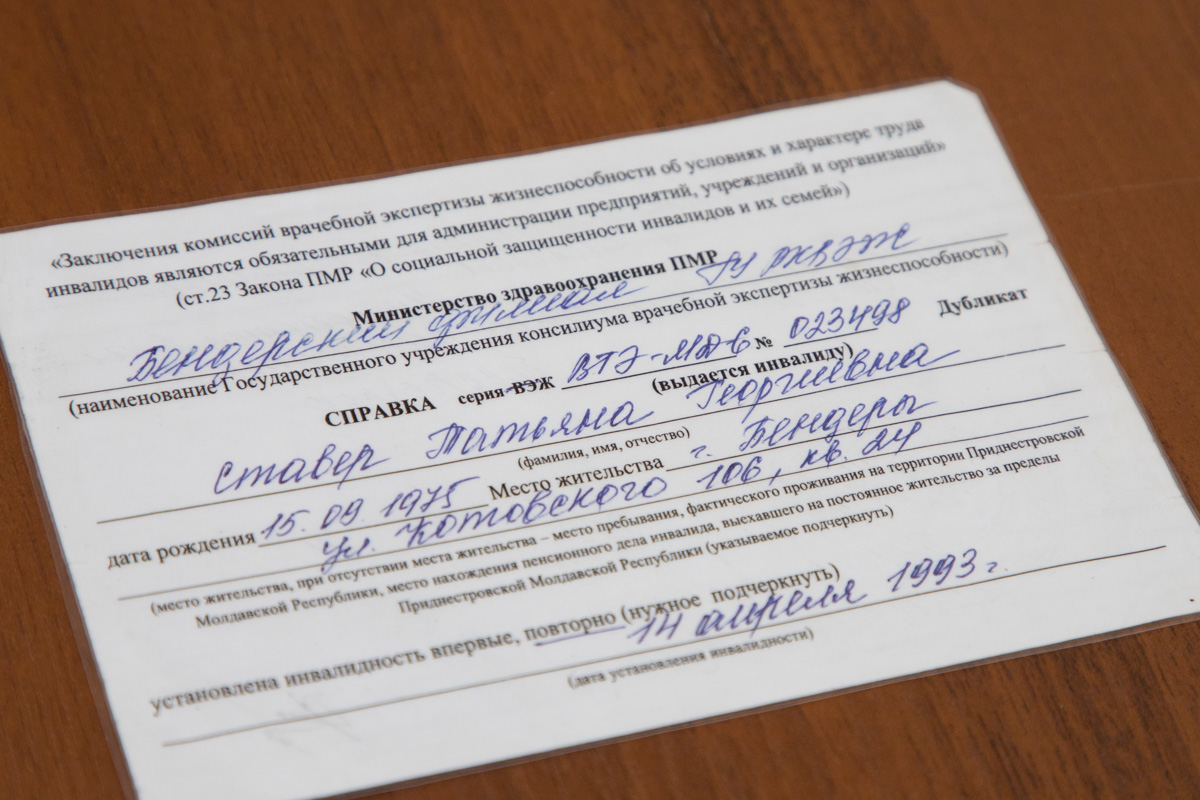 «Заключения комиссий врачебной экспертизы жизнеспособности об условиях и характере труда
инвалидов являются обязательными для администрации предприятий, учреждений и организаций»
(ст.23 Закона ПМР «О социальной защищенности инвалидов и их семей»)
Министерство здравоохранения ПМР
Бендерский филиал ГУ РКВЭЖ
(наименование Государственного учреждения консилиума врачебной экспертизы жизнеспособности)
СПРАВКА серия ВЭЖ ВТЭ-МДС № 023498 Дубликат
(выдается инвалиду)
Ставер Татьяна Георгиевна
(фамилия, имя, отчество)
дата рождения 15.09.1975 Место жительства г. Бендеры
ул. Котовского 106, кв. 24
(место жительства, при отсутствии места жительства – место пребывания, фактического проживания на территории Приднестровской
Молдавской Республики, место нахождения пенсионного дела инвалида, выехавшего на постоянное жительство за пределы
Приднестровской Молдавской Республики (указываемое подчеркнуть)
установлена инвалидность впервые, повторно (нужное подчеркнуть)
14 апреля 1993 г.
(дата установления инвалидности)